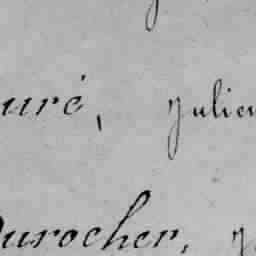 uré, Julien
Durocher, J